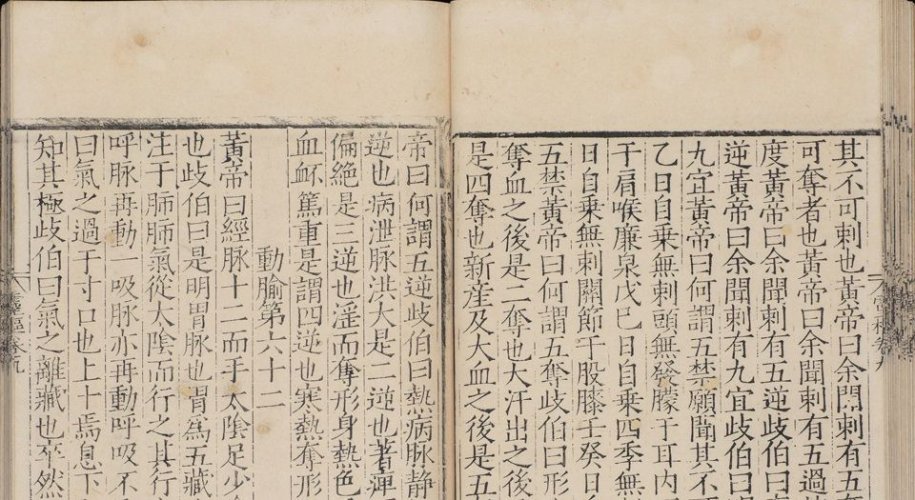 其不可刺也黃帝曰余聞刺有五
可奪者也黃帝曰余聞刺有五過
度黃帝曰余聞刺有五逆歧伯曰
逆黃帝曰余聞刺有九宜歧伯曰
九宜黃帝曰何謂五禁願聞其不
乙日自乗無刺頭無發朦于耳內
于肩喉廉泉戊巳日自乗四季無
日自乗無刺關節于股膝壬癸日
五禁黃帝曰何謂五奪歧伯曰形
奪血之後是二奪也大汗出之後
是四奪也新産及大血之後是五
帝曰何謂五逆歧伯曰熱病脉静
逆也病泄脉洪大是二逆也著痺
偏絶是三逆也滛而奪形身熱色
血衃篤重是謂四逆也寒熱奪形
動腧第六十二
黃帝曰經脉十二而手太陰足少
也歧伯曰是明胃脉也胃爲五藏
注于肺肺氣從太陰而行之其行
呼脉再動一吸脉亦再動呼吸不
曰氣之過于寸口也上十焉息下
知其極歧伯曰氣之離藏也卒然